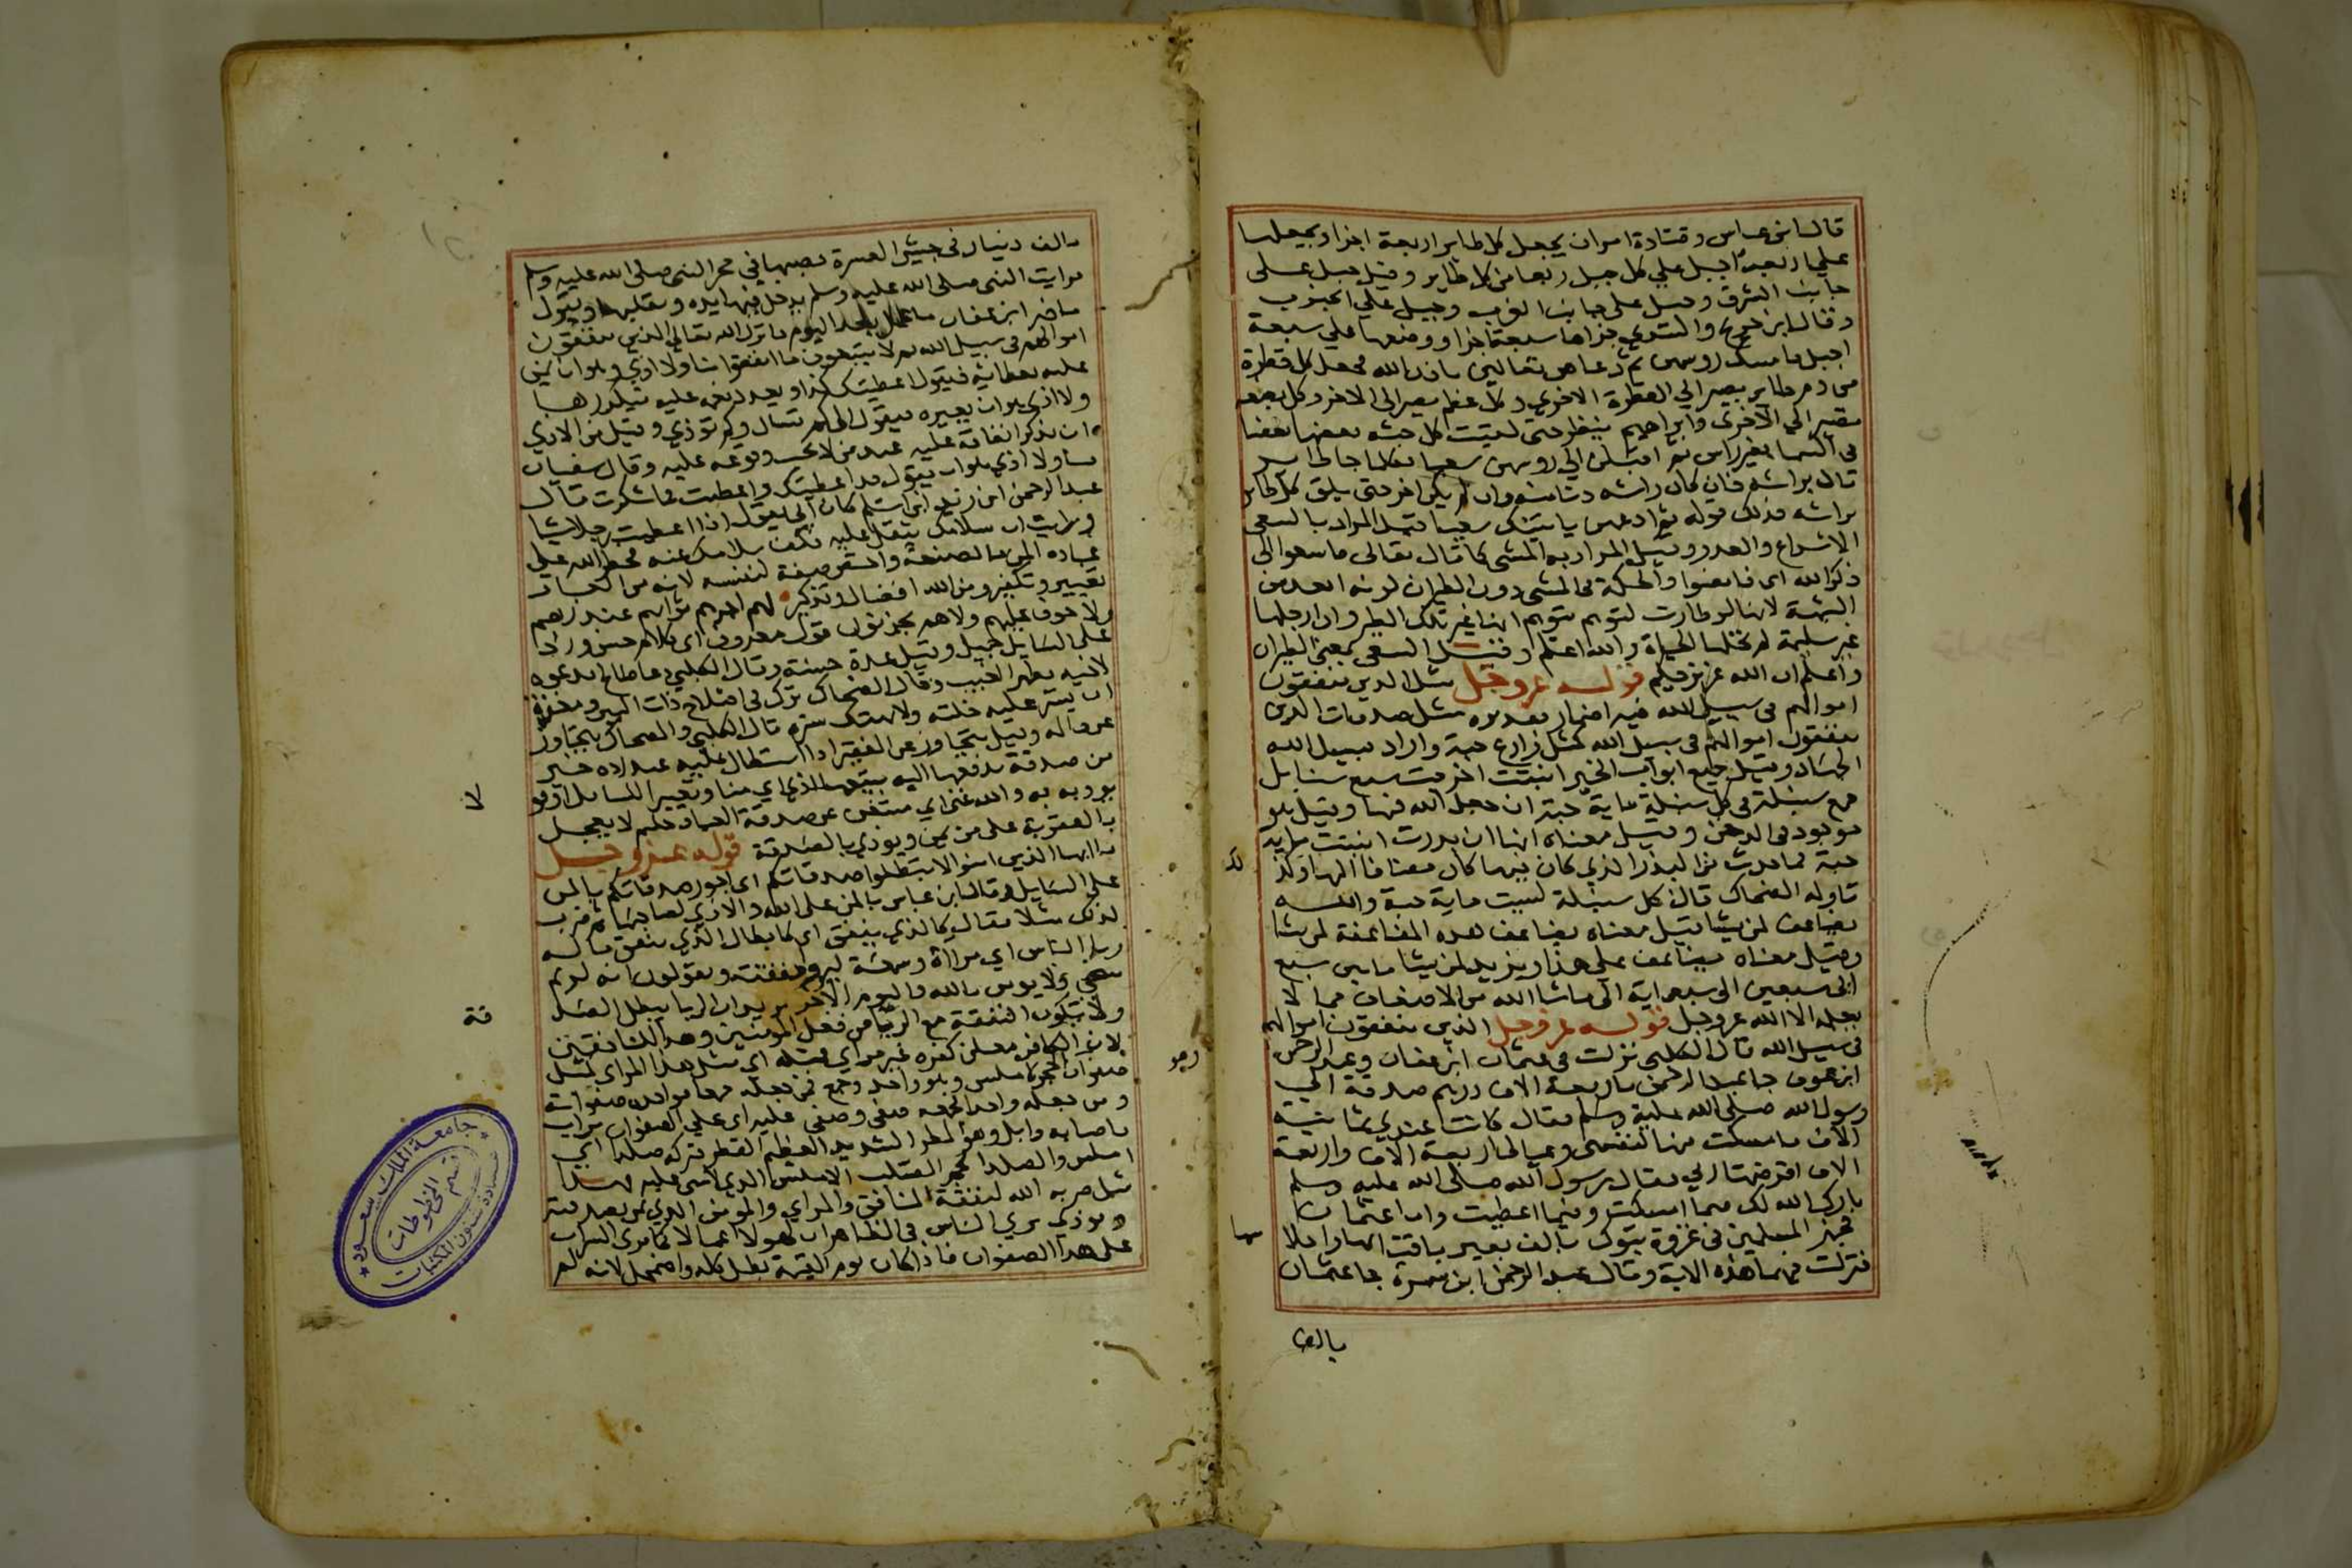 قال ابن عباس وقتادة امر ان يجعل كل طاير اربعة اجزا ويجعلها
علي اربعة اجبل علي كل جبل ربعا من كل طاير وقيل جبل على
جانب الشرق وجبل على جانب الغرب وجبل علي الجنوب
وقال ابن جريج والسدي جزاها سبعة اجزا ووضعها علي سبعة
اجبل فامسك روسهن ثم دعاهن تعالين باذن الله فجعل كل قطرة
من دم طاير يصير الي القطرة الاخري وكل عظم يصير الى الاخر وكل بضعة
تصير الي الاخرى وابراهيم ينظر حتى لقيت كل جثه بعضها بعضا
في السما بغير راس ثم اقبلن الي روسهن سعيا فكلما جا طاير
قال براسه فان كان راسه دنا منه وان لم يكن اخر حتى يلق كل طاير
براسه فذلك قوله ثم ادعهن ياتينك سعيا قيل المراد بالسعى
الاسراع والعدو وقيل المراد به المشى كما قال تعالى فاسعوا الى
ذكر الله اي فامضوا والحكمة في المشى دون الطيران لونه ابعد من
الشبهة لانها لو طارت لتوهم متوهم انها غير تلك الطير وان ارجلها
غير سليمة لم تخلها الحياة والله اعلم وقيل السعى بمعنى الطيران
واعلم ان الله عزيز حكيم قوله عز وجل مثل الذين ينفقون
اموالهم في سبيل الله فيه اضمار تقديره مثل صدقات الذين
ينفقون اموالهم في سبيل الله كمثل زارع حبة واراد بسبيل الله
الجهاد وقيل جميع ابواب الخير انبتت اخرجت سبع سنابل
جمع سنبلة في كل سنبلة ماية حبة ان جعل الله فيها وقيل هو
موجود في الدخن وقيل معناه انها ان بدرت انبتت ماية
حبة فما حدث من البذر الذي كان فيها كان مضافا اليها وكذ
تاوله الضحاك قال كل سنبلة انبتت ماية حبة والله
يضاعف لمن يشا قيل معناه يضاعف هذه المضاعفة لمن يشا
وقيل معناه يضاعف علي هذا ويزيد لمن يشا مابين سبع
الى سبعين الى سبعماية الى ماشا الله من الاضعاف مما لا
يعلمه الا الله عز وجل قوله عز وجل الذين ينفقون اموالهم
في سبيل الله قال الكلبي نزلت في عثمان ابن عفان وعبد الرحمن
ابن عوف جا عبد الرحمن باربعة الاف درهم صدقة الي
رسول الله صلى الله عليه وسلم فقال كانت عندي ثمانية
الاف فامسكت منها لنفسى وعيالي اربعة الاف واربعة
الاف اقرضتها ربي فقال رسول الله صلى الله عليه وسلم
بارك الله لك فيما امسكت وفيما اعطيت واما عثمان
فجهز المسلمين في غزوة تبوك بالف بعير باقتابها واحلا
سها
فنزلت فيهما هذه الاية وقال عبد الرحمن ابن سمرة جا عثمان
بالف
بالف دنيار في جيش العسرة فصبها في حجر النبي صلى الله عليه وسلم
فرايت النبى صلى الله عليه وسلم يدخل فيها يده ويقلبها ويقول
ما ضر ابن عفان ما عمل بعد اليوم فانزل الله تعالى الذين ينفقون
اموالهم في سبيل الله ثم لا يتبعون ما انفقوا منا ولا اذي وهو ان يمن
عليه بعطائه فيقول اعطيتك كذا ويعد نعمه عليه فيكدرها
ولا اذى هو ان يعيره فيقول الى كم تسال وكم توذي وقيل من الاذي
ان يذكر انفاقه عليه عند من لا يحب وقوفه عليه وقال سفيان
منا ولا اذي هو ان يقول قد اعطيتك واعطيت فما شكرت قال
عبد الرحمن ابن زيد ابن اسلم كان ابي يقول اذا اعطيت رجلا شيا
ورايت ان سلامك يثقل عليه فكف سلامك عنه فحظر الله علي
عباده المن بالصنيعة واختص صفة لنفسه لانه من العباد
تعيير وتكدير ومن الله افضال وتذكير لهم اجرهم ثوابهم عند ربهم
ولا خوف عليهم ولا هم يحزنون قول معروف اي كلام حسن ورد
علي السايل جميل وقيل عدة حسنة وقال الكلبي دعا صالح يدعوه
لاخيه بظهر الغيب وقال الضحاك نزلت في اصلاح ذات البين ومغفرة
ان يستر عليه خلته ولا يهتك ستره قال الكلبي والضحاك يتجاوز
عن ظالمه وقيل يتجاوز عن الفقير اذا استطال عليه عند رده خير
من صدقة يدفعها اليه يتبعها اذى اي منا وتعيير السايل اوقو
لا
يوديه به والله غني اي مستغن عن صدقة العباد حليم لا يعجل
بالعقوبة على من يمن ويوذي بالصدقة قوله عز وجل
يا ايها الذين امنوا لا تبطلوا صدقاتكم اي اجور صدقاتكم بالمن
علي السايل وقال ابن عباس بالمن على الله والاذي لصاحبها ثم ضرب
لذلك مثلا فقال كالذي ينفق اي كابطال الذي ينفق ماله
ريا الناس اي مراة وسمعة ليروا نفقته ويقولون انه كريم
سخي ولا يومن بالله واليوم الاخر يريد ان الريا يبطل الصد
قة
ولا تكون النفقة مع الريا من فعل المومنين وهذا للمنافقين
لان الكافر معلن كفره غير مراي فمثله اي مثل هذا المراي كمثل
صفوان الحجر الاملس وهو واحد وجمع فمن جعله جمعا فواحده صفوانة
ومن جعله واحدا فجمعه صفي وصفي عليه اي علي الصفوان تراب
فاصابه وابل وهو المطر الشديد العظيم القطر فتركه صلدا اي
املس والصلد الحجر الصلب الاملس الذي لاشي عليه فهذا
مثل ضربه الله لنفقة المنافق والمراي والمومن الذي يمن بصدقته
ويوذي يري الناس في الظاهر ان لهولا اعمالا كما يرى التراب
على هذا الصفوان فاذا كان يوم القيمة بطل كله واضمحل لانه لم
جامعة الملك سعود
عمادة شئون المكتبات
قسم المخطوطات